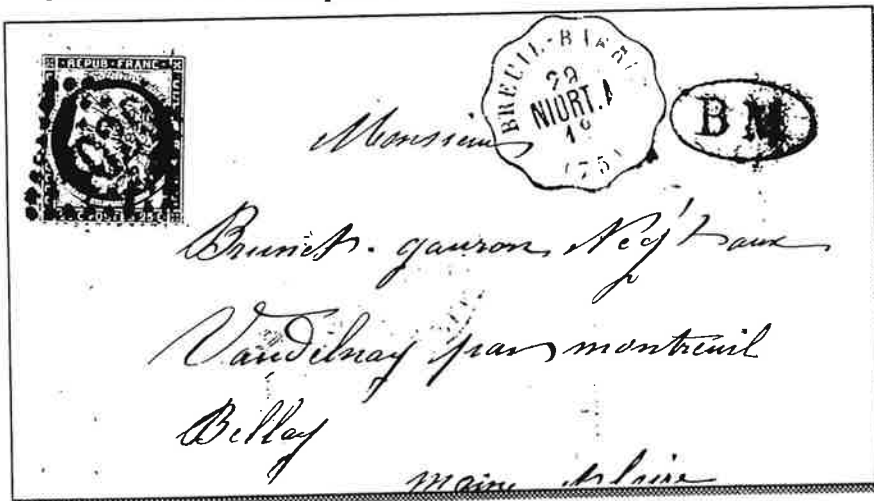 REPUB FRANC
25 C
BREUIL-
29
NIORT.
(75)
B M
Monsieur
Brunet-gauron Négt aux
Vaudelnay par montreuil
Bellay
maine et loire